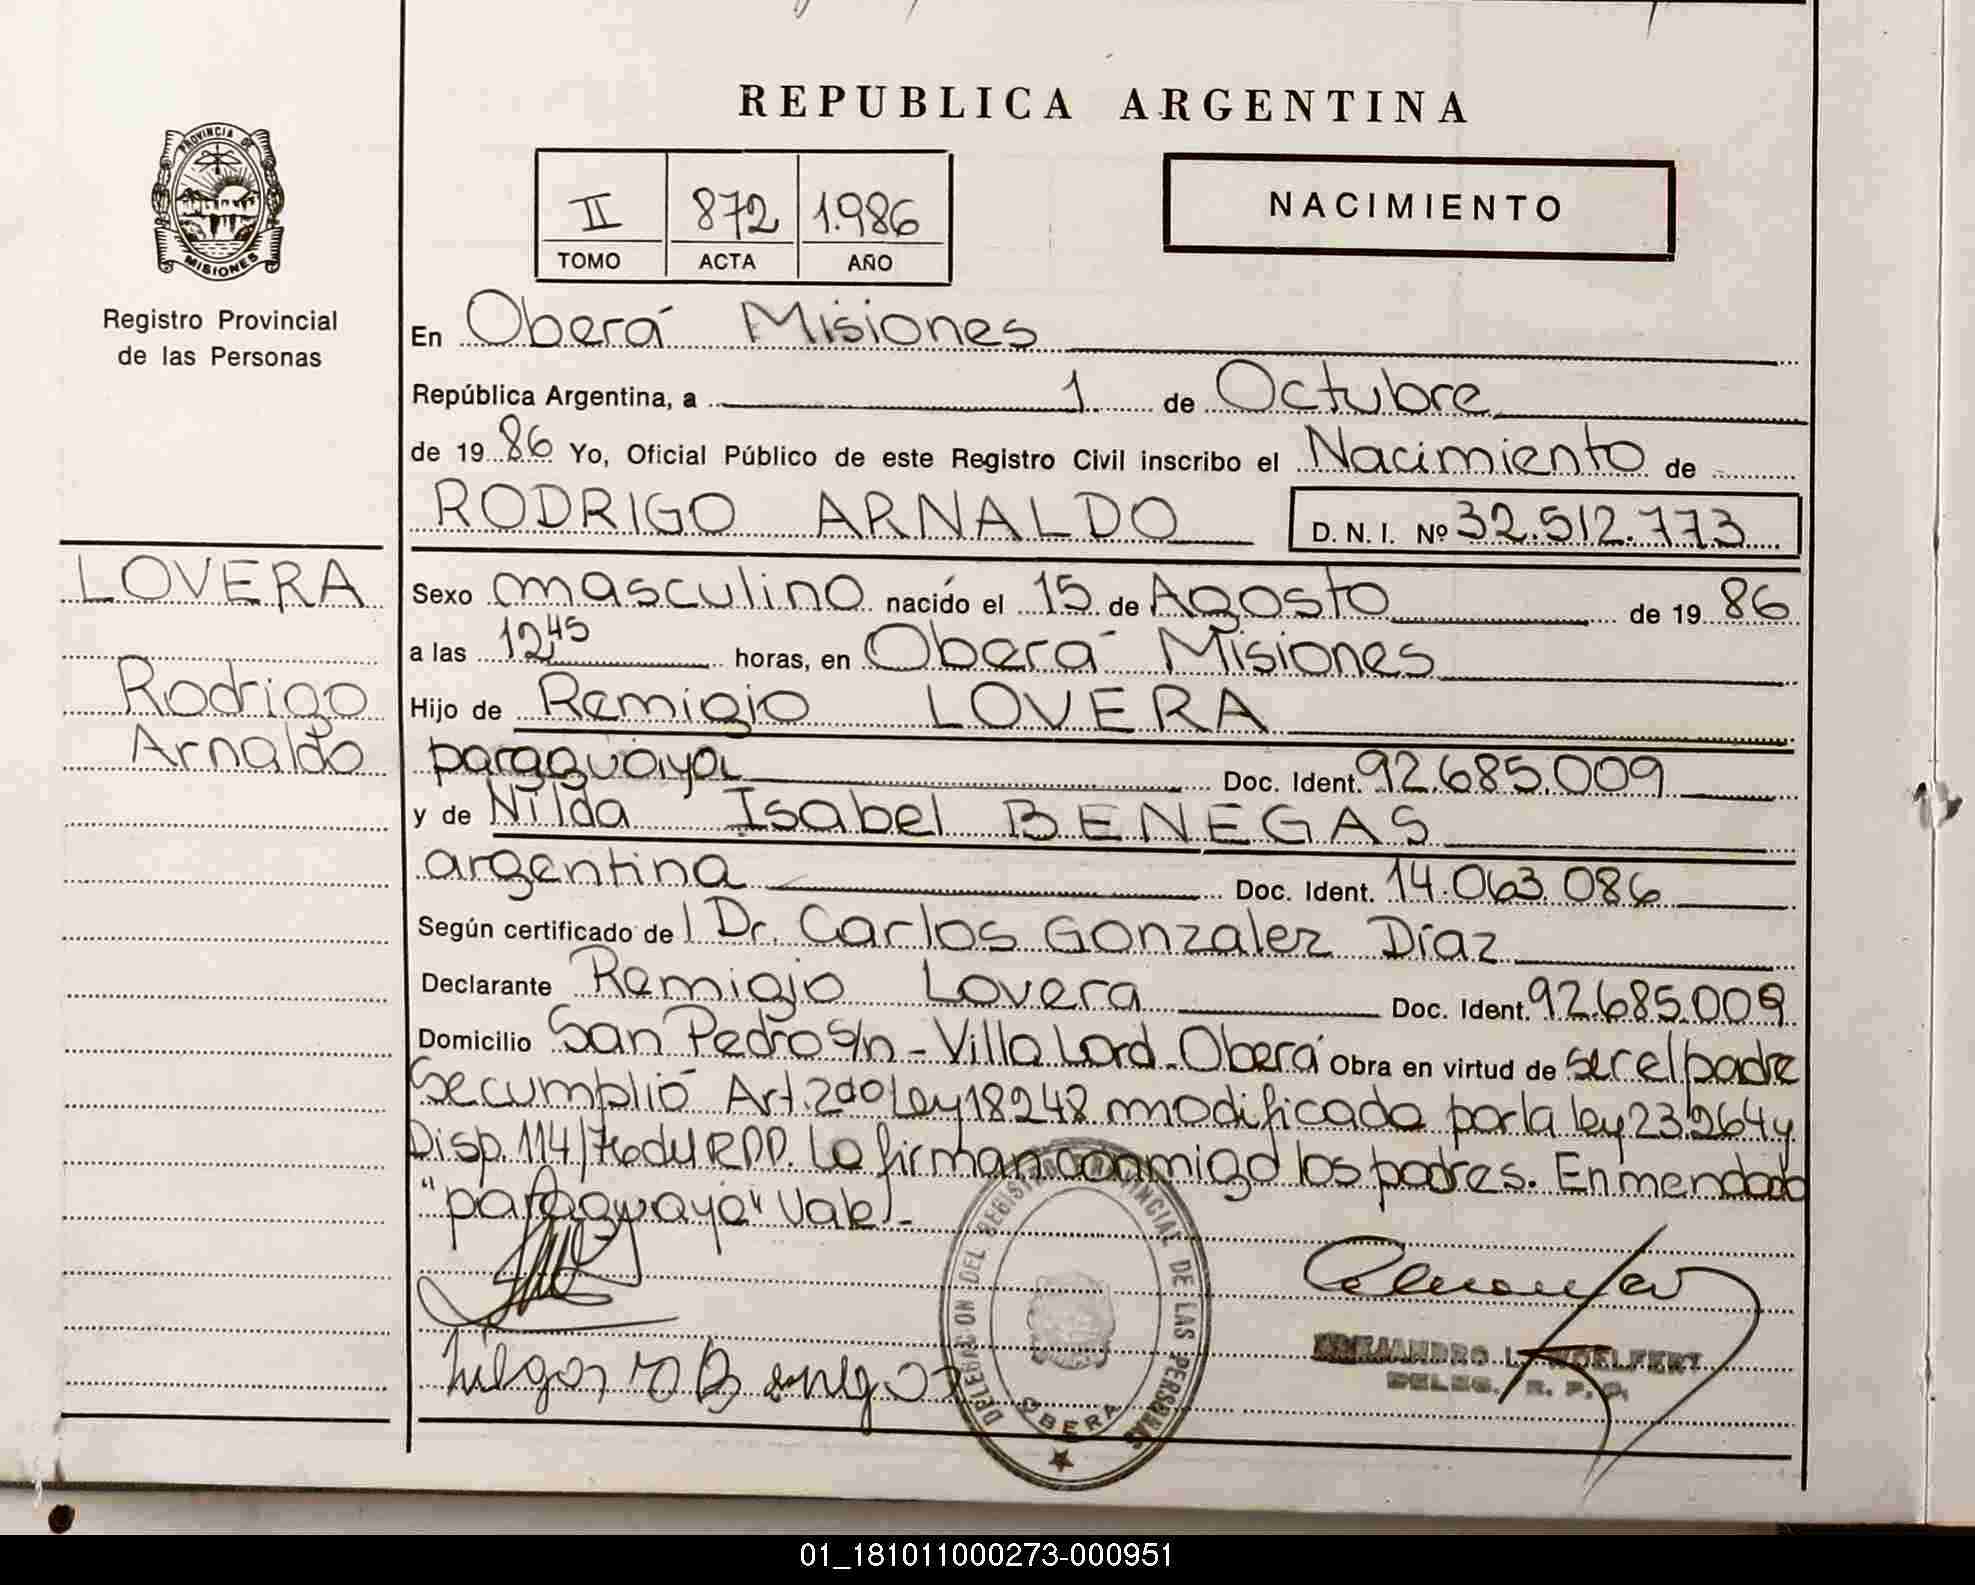 REPUBLICA ARGENTINA
PROVINCIA DE
MISIONES
Registro Provincial
de las Personas
II 872 1.986
TOMO ACTA AÑO
NACIMIENTO
En Oberá Misiones
República Argentina, a 1 de Octubre
de 1986 Yo, Oficial Público de este Registro Civil inscribo el Nacimiento de
RODRIGO ARNALDO D. N. I. Nº 32.512.773
LOVERA
Rodrigo
Arnaldo
Sexo masculino nacido el 15 de Agosto de 1986
a las 12 45 horas, en Oberá Misiones
Hijo de Remigio LOVERA
paraguaya Doc. Ident. 92.685.009
y de Nilda Isabel BENEGAS
argentina Doc. Ident. 14.063.086
Según certificado del Dr. Carlos Gonzalez Díaz
Declarante Remigio Lovera Doc. Ident. 92.685.009
Domicilio San Pedro s/n - Villa Lord - Oberá Obra en virtud de ser el padre
Se cumplió Art. 2do Ley 18248 modificado por la ley 23.264 y
Disp. 114/76 del RPP. Lo firman conmigo los padres. Enmendado
"paraguaya" Vale.-
DELEGACION DEL REGISTRO PROVINCIAL DE LAS PERSONAS
OBERA
ALEJANDRO L.
DELEG. R. P. P.
01_181011000273-000951